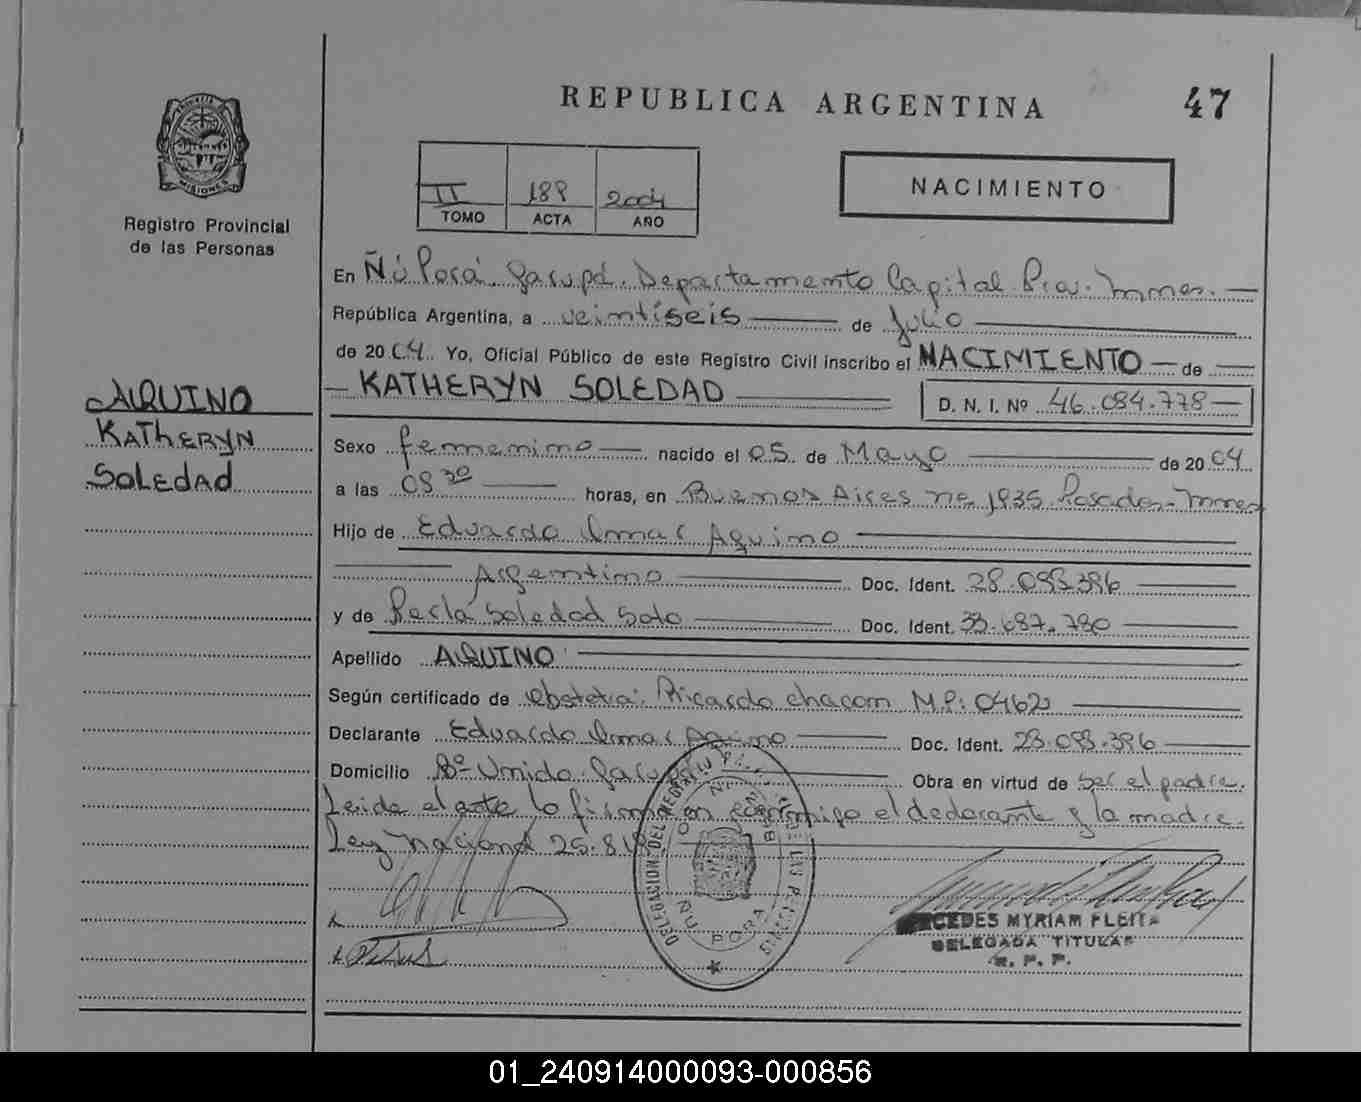 REPUBLICA ARGENTINA
47
MISIONES
Registro Provincial
de las Personas
II 188 2004
TOMO ACTA AÑO
NACIMIENTO
En Ñú Porá Garupá. Departamento Capital. Pcia. Mnes.
República Argentina, a veintiseis de Julio
de 2004. Yo, Oficial Público de este Registro Civil inscribo el NACIMIENTO de
KATHERYN SOLEDAD
D. N. I. Nº 46.084.778
AQUINO
KATHERYN
SOLEDAD
Sexo femenino nacido el 05 de Mayo de 2004
a las 08 30 horas, en Buenos Aires nº 1935 Posadas - Mnes
Hijo de Eduardo Omar Aquino
Argentino Doc. Ident. 28.093.396
y de Perla Soledad Soto Doc. Ident. 33.687.780
Apellido AQUINO
Según certificado de obstetra: Ricardo chacon M.P: 0462
Declarante Eduardo Omar Aquino Doc. Ident. 28.093.396
Domicilio Bº Unido. Garupá Obra en virtud de Ser el padre.
Leida el acta lo firman conmigo el declarante y la madre.
Ley Nacional 25.819
DELEGACION DEL REGISTRO LAS PERSONAS
ÑU PORA
MERCEDES MYRIAM FLEITA
DELEGADA TITULAR
R. P. P.
01_240914000093-000856